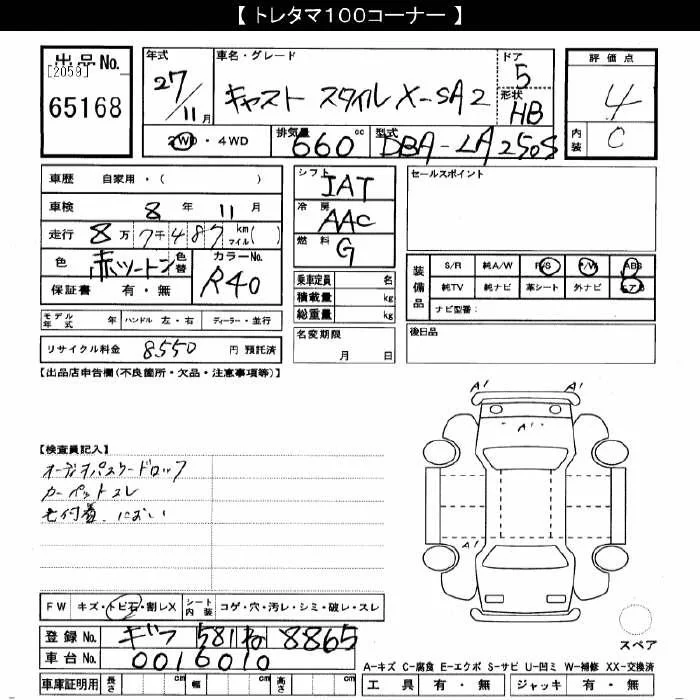 【 トレタマ100コーナー 】
出品No.
[2059]
65168
年式
27/11月
車名・グレード
キャスト スタイル X-SA2
ドア
5
形状
HB
評価点
4
内装
C
2WD・4WD
排気量
660 cc
型式
DBA-LA250S
車歴 自家用・( )
車検 8年 11月
走行 8万7千487 km マイル( )
色 赤ツートン 色替
カラーNo.
R40
保証書 有・無
モデル年式 年 ハンドル 左・右 ディーラー・並行
リサイクル料金 8550 円 預託済
シフト
IAT
冷房
AAC
燃料
G
乗車定員 名
積載量 kg
総重量 kg
名変期限
月 日
セールスポイント
装備品
S/R 純A/W P/S P/W ABS
純TV 純ナビ 革シート 外ナビ エアB
ナビ型番:
後日品
【出品店申告欄(不良箇所・欠品・注意事項等)】
【検査員記入】
オーディオパスワードロック
カーペットスレ
毛付着、におい
A' A'
A'
A'
スペア
FW キズ・トビ石・割レX シート内装 コゲ・穴・汚レ・シミ・破レ・スレ
登録No. ギフ 581 ね 8865
車台No. 0016010
車庫証明用 長さ cm 幅 cm 高さ cm
A-キズ C-腐食 E-エクボ S-サビ U-凹ミ W-補修 XX-交換済
工具 有・無 ジャッキ 有・無